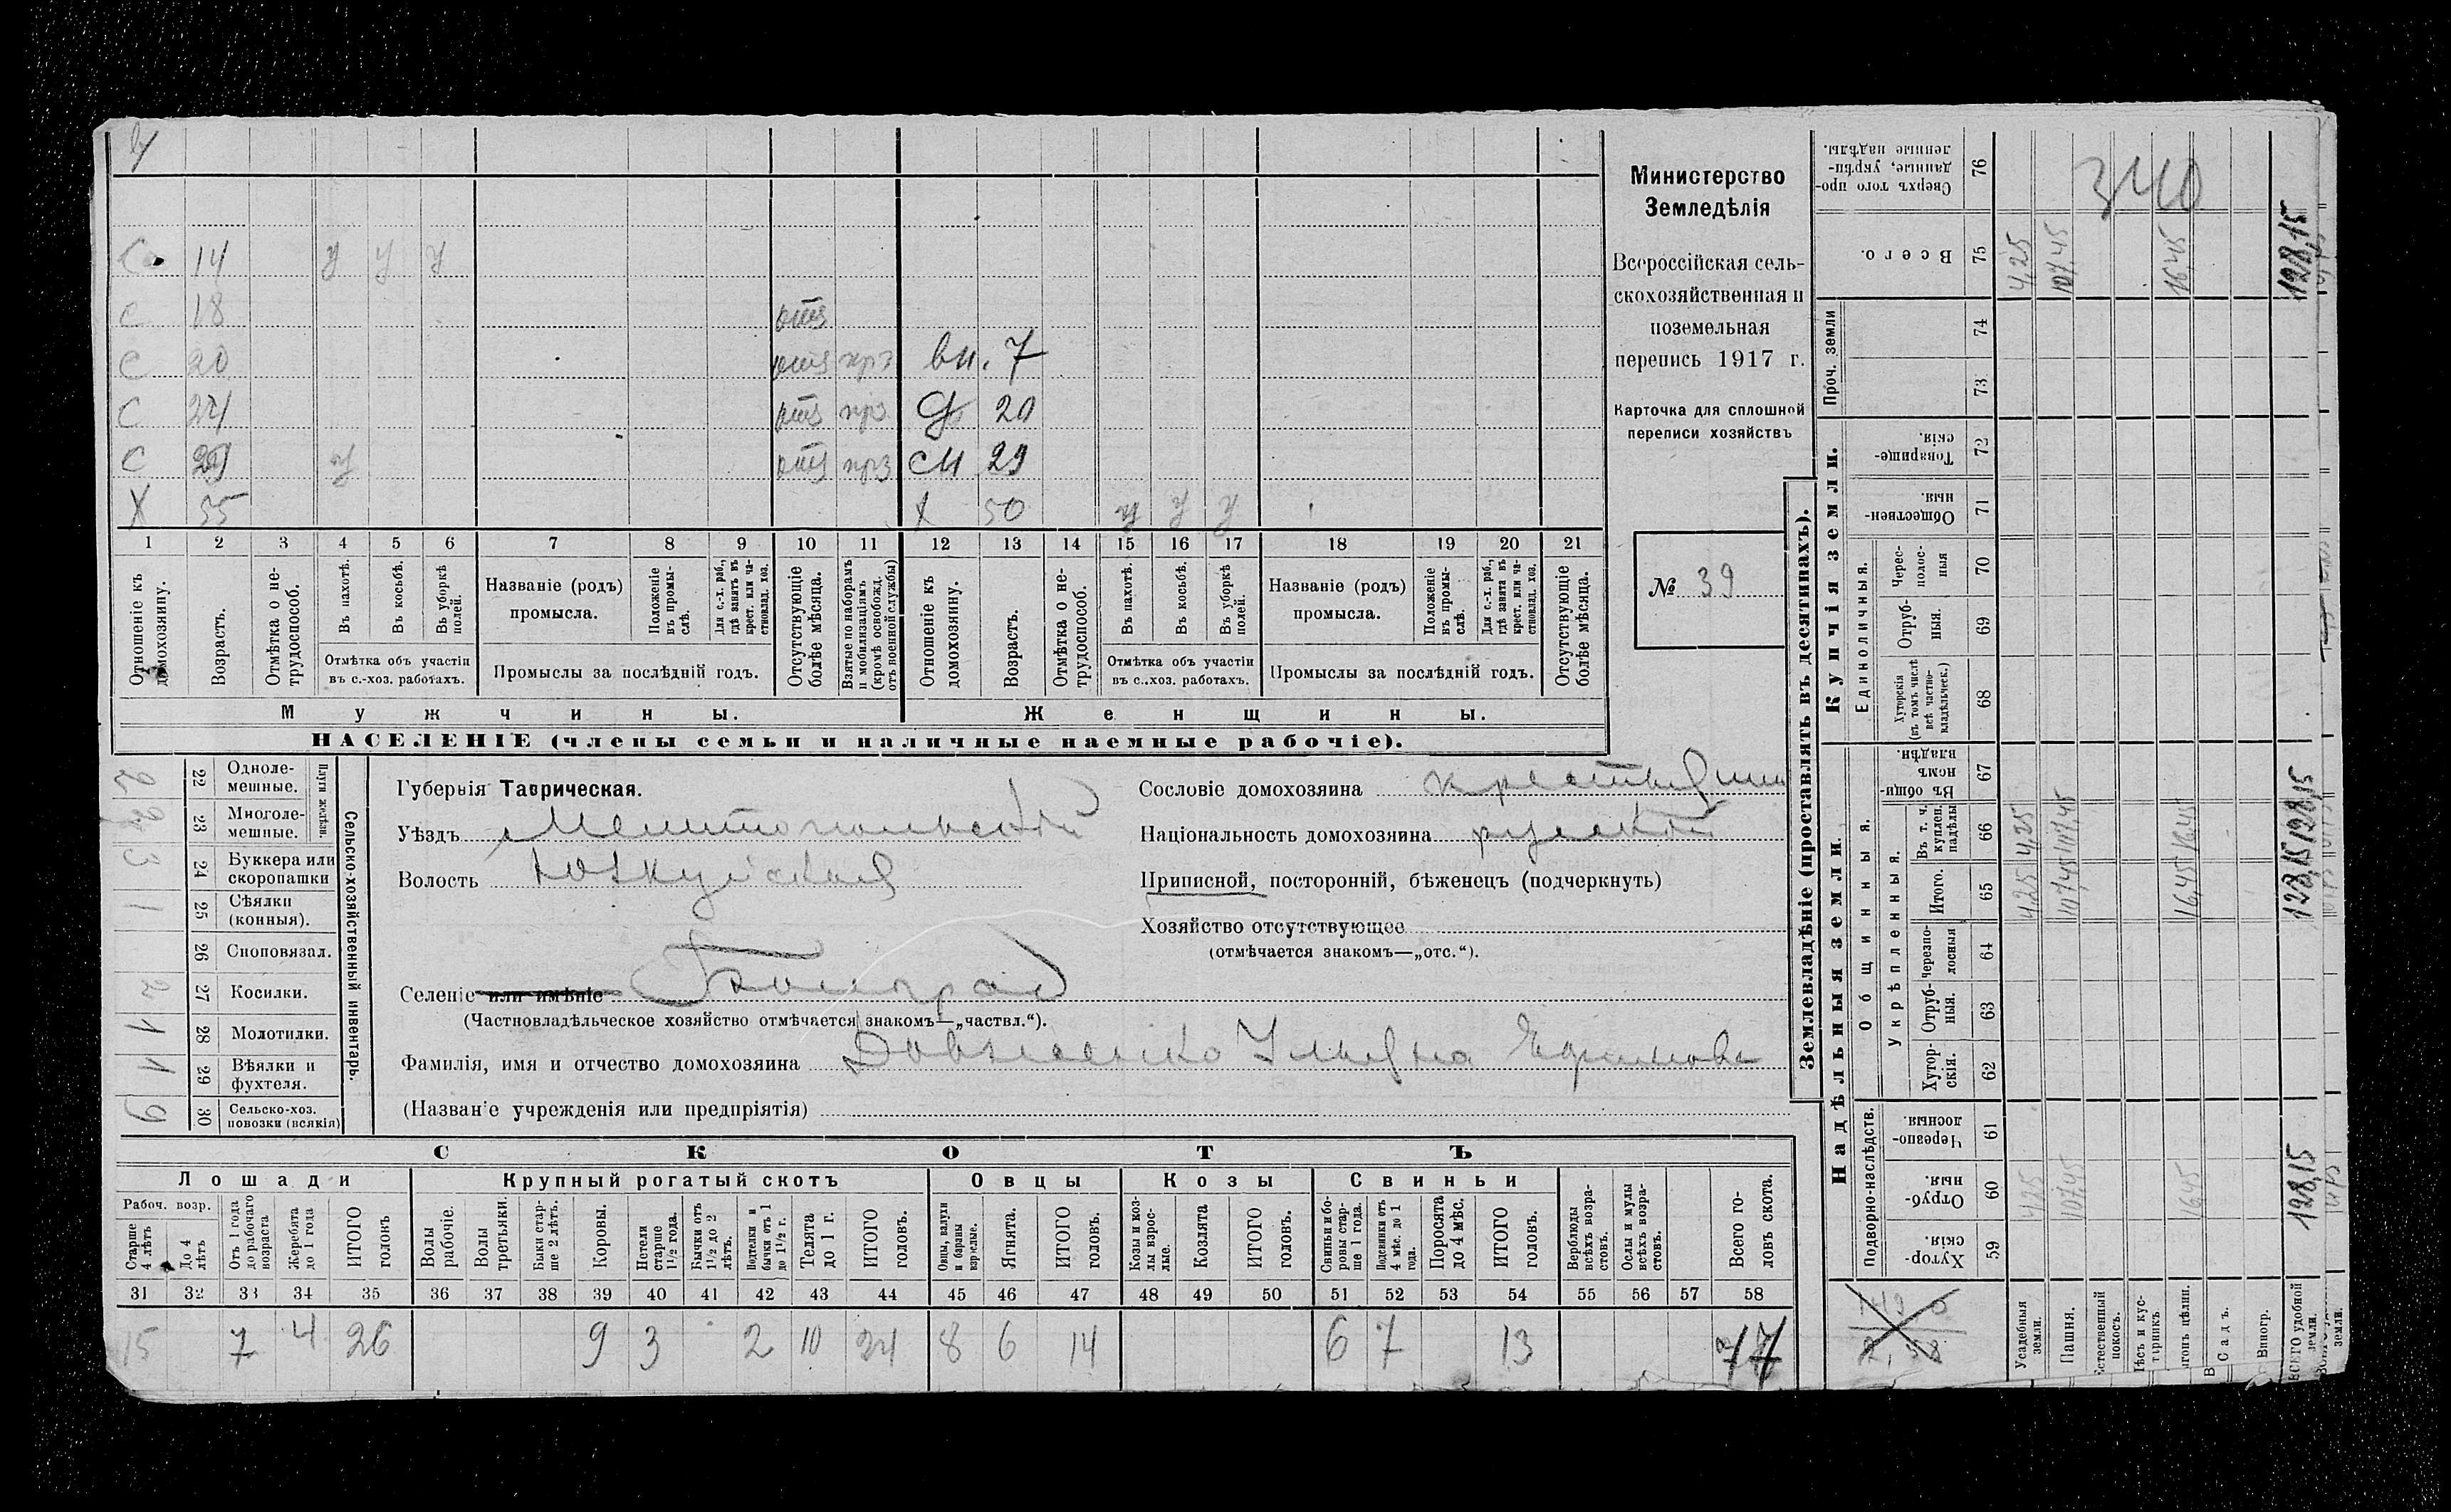 Министерство
Земледѣлія
Всероссійская сель-
скохозяйственная и
поземельная
перепись 1917 г.
Карточка для сплошной
переписи хозяйствъ
№ 39
14 У У У
С 18 отс
С 20 отс прз вн. 7
С 24 отс прз 20
С 29 У отс прз 29
Х 55 Х 50 У У У
1 2 3 4 5 6 7 8 9 10 11 12 13 14 15 16 17 18 19 20 21
Отношеніе къ домохозяину.
Возрастъ.
Отмѣтка о не-трудоспособ.
Въ пахотѣ.
Въ косьбѣ.
Въ уборкѣ полей.
Отмѣтка объ участіи
въ с.-хоз. работахъ.
Названіе (родъ)
промысла.
Положеніе въ промы-слѣ.
Для с.-х. раб., гдѣ занятъ въ крест. или ча-стновлад. хоз.
Промыслы за послѣдній годъ.
Отсутствующіе болѣе мѣсяца.
Взятые по наборамъ и мобилизаціямъ (кромѣ освобожд. отъ военной службы)
Отношеніе къ домохозяину.
Возрастъ.
Отмѣтка о не-трудоспособ.
Въ пахотѣ.
Въ косьбѣ.
Въ уборкѣ полей.
Отмѣтка объ участіи
въ с.-хоз. работахъ.
Названіе (родъ)
промысла.
Положеніе въ промы-слѣ.
Для с.-х. раб., гдѣ занятъ въ крест. или ча-стновлад. хоз.
Промыслы за послѣдній годъ.
Отсутствующіе болѣе мѣсяца.
Мужчины. Женщины.
НАСЕЛЕНІЕ (члены семьи и наличные наемные рабочіе).
Сельско-хозяйственный инвентарь.
Плуги желѣзн.
22 Одноле-мешные. 2
23 Многоле-мешные.
24 Буккера или скоропашки 3
25 Сѣялки (конныя). 1
26 Сноповязал.
27 Косилки. 2
28 Молотилки. 1
29 Вѣялки и фухтеля. 1
30 Сельско-хоз. повозки (всякія) 9
Губернія Таврическая.
Уѣздъ Мелитопольскій
Волость Юзкуйская
Селеніе или имѣніе
(Частновладѣльческое хозяйство отмѣчается знакомъ—„частвл.“).
Сословіе домохозяина
Національность домохозяина русскій
Приписной, посторонній, бѣженецъ (подчеркнуть)
Хозяйство отсутствующее
(отмѣчается знакомъ—„отс.“).
Фамилія, имя и отчество домохозяина
(Названіе учрежденія или предпріятія)
СКОТЪ
Лошади Крупный рогатый скотъ Овцы Козы Свиньи
Рабоч. возр.
Старше 4 лѣтъ
До 4 лѣтъ
Отъ 1 года до рабочаго возраста
Жеребята до 1 года
ИТОГО головъ
Волы рабочіе.
Волы третьяки.
Быки стар-ше 2 лѣтъ.
Коровы.
Нетели старше 1½ года.
Бычки отъ 1½ до 2 лѣтъ.
Подтелки и бычки отъ 1 до 1½ г.
Телята до 1 г.
ИТОГО головъ.
Овцы, валухи и бараны взрослые.
Ягнята.
ИТОГО головъ.
Козы и коз-лы взрос-лые.
Козлята
ИТОГО головъ.
Свиньи и бо-ровы стар-ше 1 года.
Подсвинки отъ 4 мѣс. до 1 года.
Поросята до 4 мѣс.
ИТОГО головъ.
Верблюды всѣхъ возра-стовъ.
Ослы и мулы всѣхъ возра-стовъ.
Всего го-ловъ скота.
31 32 33 34 35 36 37 38 39 40 41 42 43 44 45 46 47 48 49 50 51 52 53 54 55 56 57 58
15 7 4 26 9 3 2 10 24 8 6 14 6 7 13 77
Землевладѣніе (проставлять въ десятинахъ).
Надѣльныя земли. Купчія земли. Проч. земли
Подворно-наслѣдств. Общинныя. Укрѣпленныя. Единоличныя.
Хутор-скія. 59
Отруб-ныя. 60
Черезпо-лосныя 61
Хутор-скія. 62
Отруб-ныя. 63
Черезпо-лосныя 64
Итого. 65
Въ т. ч. куплен. надѣлы 66
Въ общи-номъ владѣн. 67
Хуторскія (въ томъ числѣ всѣ частно-владѣльческ.) 68
Отруб-ныя. 69
Черес-полос-ныя 70
Обществен-ныя. 71
Товарище-скія. 72
73
74
Всего. 75
Сверхъ того про-данные, укрѣп-ленные надѣлы. 76
340
Усадебныя земли. 4,25 4,25 4,25 4,25
Пашня. 107,45 107,45 107,45 107,45
16,45 16,45 16,45 16,45
Садъ.
Виногр.
удобной земли. 128,15 128,15 128,15 128,15
земли.